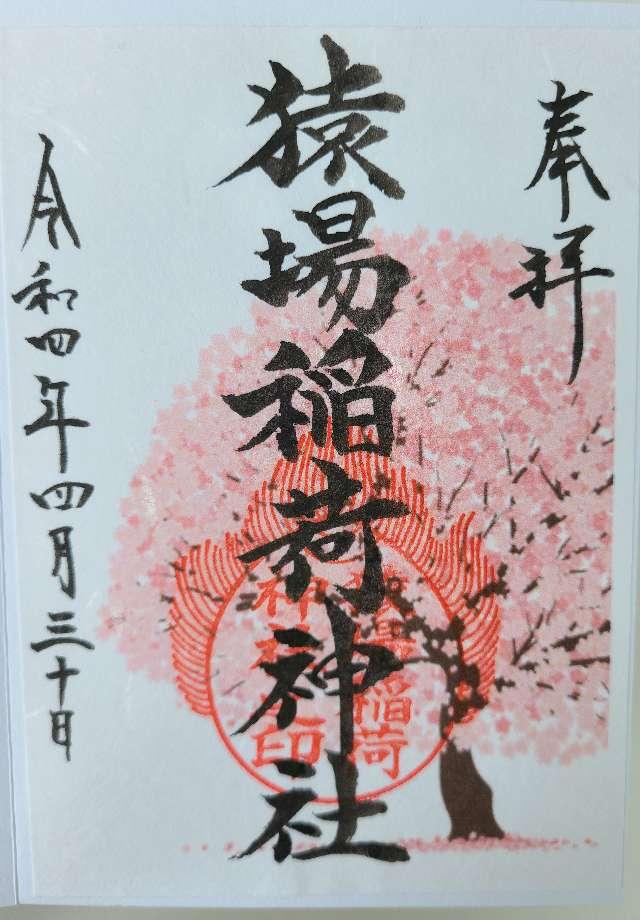 奉拝
猿場稲荷神社
稲荷
神社
印
令和四年四月三十日